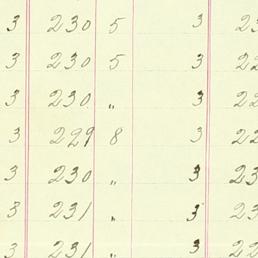 3 230 5 3 23
3 230 5 3 22
3 230 " 3 22
3 229 8 3 22
3 230 " 3 23
3 231 " 3 23
3 231 " 3 22